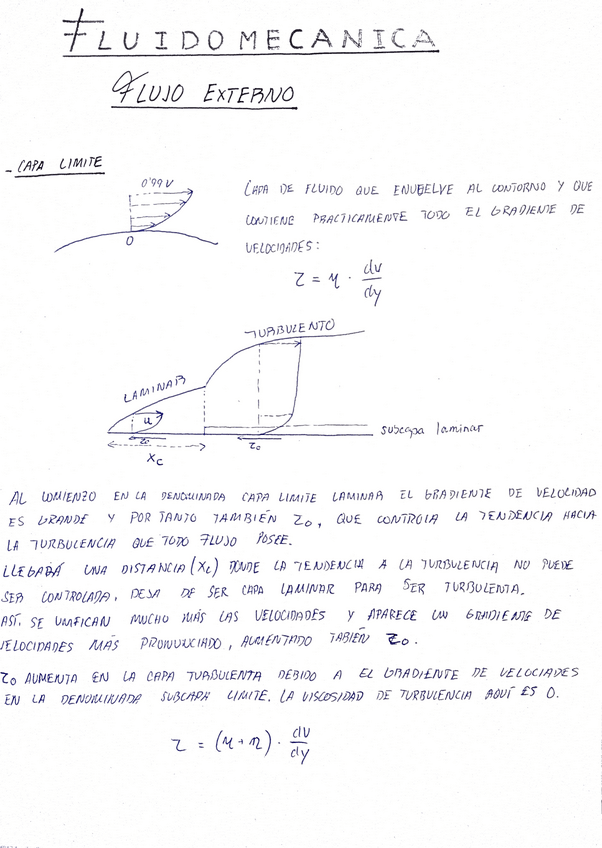 FLUIDOMECANICA
FLUJO EXTERNO
- CAPA LIMITE
0'99 V
0
CAPA DE FLUIDO QUE ENVUELVE AL CONTORNO Y QUE
CONTIENE PRACTICAMENTE TODO EL GRADIENTE DE
VELOCIDADES:
τ = μ · dv/dy
TURBULENTO
LAMINAR
u
τo
τo
subcapa laminar
Xc
AL COMIENZO EN LA DENOMINADA CAPA LIMITE LAMINAR EL GRADIENTE DE VELOCIDAD
ES GRANDE Y POR TANTO TAMBIÉN τo, QUE CONTROLA LA TENDENCIA HACIA
LA TURBULENCIA QUE TODO FLUJO POSEE.
LLEGARÁ UNA DISTANCIA (Xc) DONDE LA TENDENCIA A LA TURBULENCIA NO PUEDE
SER CONTROLADA, DEJA DE SER CAPA LAMINAR PARA SER TURBULENTA.
ASÍ, SE UNIFICAN MUCHO MÁS LAS VELOCIDADES Y APARECE UN GRADIENTE DE
VELOCIDADES MÁS PRONUNCIADO, AUMENTADO TABIÉN τo.
τo AUMENTA EN LA CAPA TURBULENTA DEBIDO A EL GRADIENTE DE VELOCIADES
EN LA DENOMINADA SUBCAPA LIMITE. LA VISCOSIDAD DE TURBULENCIA AQUÍ ES 0.
τ = (μ + η) · dv/dy